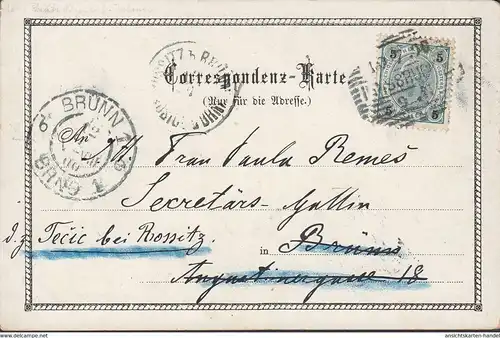 Correspondenz-Karte.
(Nur für die Adresse.)
BRÜNN
BRNO
5 5
5 5
An
Frau Paula Remeš
Secretärs-Gattin
d. z. Tečic bei Rossitz
in Brünn
Augustinergasse 18
ansichtskarten-handel